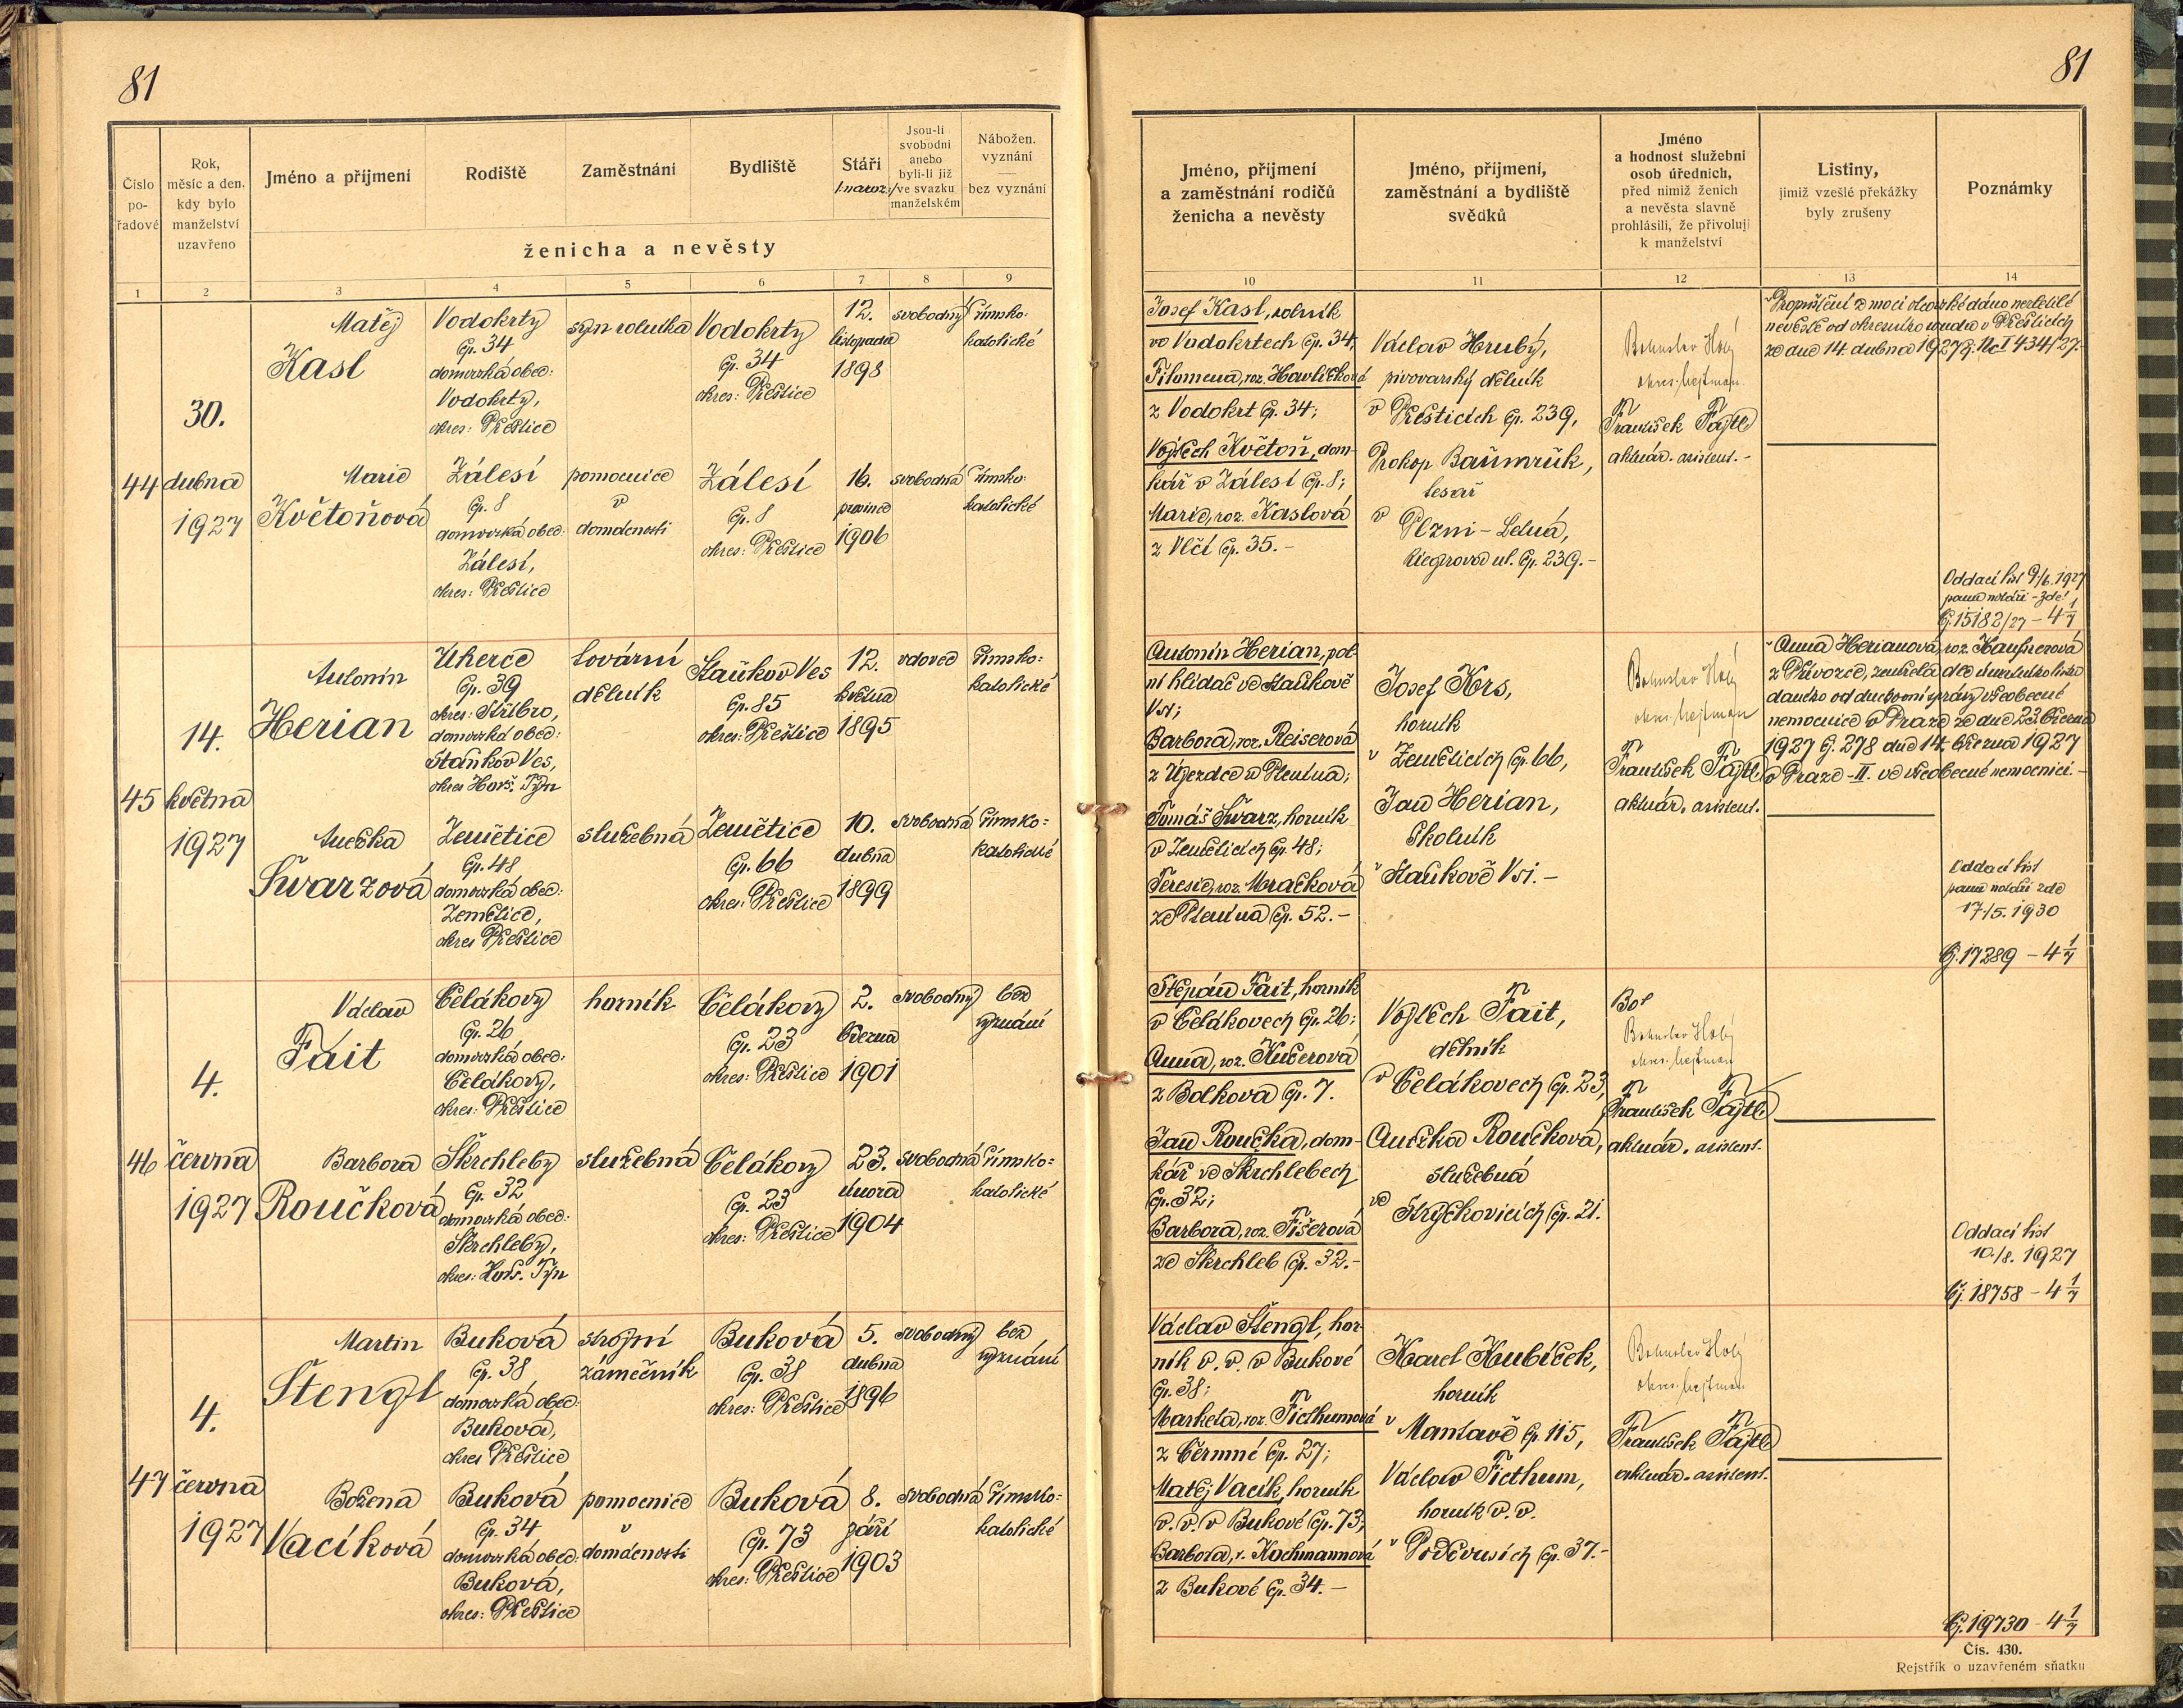 81
Číslo pořadové
Rok, měsíc a den, kdy bylo manželství uzavřeno
Jméno a příjmení
Rodiště
Zaměstnání
Bydliště
Stáří
/:naroz:/
Jsou-li svobodni anebo byli-li již ve svazku manželském
Nábožen. vyznání
—
bez vyznání
ženicha a nevěsty
1 2 3 4 5 6 7 8 9
44
30.
dubna
1927
Matěj
Kasl
Vodokrty
čp. 34
domovská obec:
Vodokrty,
okres: Přeštice
syn rolníka
Vodokrty
čp. 34
okres: Přeštice
12.
listopadu
1898
svobodný
římsko-
katolické
Marie
Květoňová
Zálesí
čp. 8
domovská obec:
Zálesí,
okres: Přeštice
pomocnice
v
domácnosti
Zálesí
čp. 8
okres: Přeštice
16.
prosince
1906
svobodná
římsko-
katolické
45
14.
května
1927
Antonín
Herian
Úherce
čp. 39
okres: Stříbro,
domovská obec:
Staňkov Ves,
okres Horš. Týn
tovární
dělník
Staňkov Ves
čp. 85
okres: Přeštice
12.
května
1895
vdovec
římsko-
katolické
Anežka
Švarzová
Zemětice
čp. 48
domovská obec:
Zemětice,
okres Přeštice
služebná
Zemětice
čp. 66
okres: Přeštice
10.
dubna
1899
svobodná
římsko-
katolické
46
4.
června
1927
Václav
Fait
Čelákovy
čp. 26
domovská obec:
Čelákovy,
okres: Přeštice
horník
Čelákovy
čp. 23
okres: Přeštice
2.
března
1901
svobodný
bez
vyznání
Barbora
Roučková
Škrchleby
čp. 32
domovská obec:
Škrchleby,
okres: Horš. Týn
služebná
Čelákovy
čp. 23
okres: Přeštice
23.
února
1904
svobodná
římsko-
katolické
47
4.
června
1927
Martin
Štengl
Buková
čp. 38
domovská obec:
Buková,
okres Přeštice
strojní
zámečník
Buková
čp. 38
okres: Přeštice
5.
dubna
1896
svobodný
bez
vyznání
Božena
Vacíková
Buková
čp. 34
domovská obec:
Buková,
okres: Přeštice
pomocnice
v
domácnosti
Buková
čp. 73
okres: Přeštice
8.
září
1903
svobodná
římsko-
katolické
81
Jméno, příjmení a zaměstnání rodičů ženicha a nevěsty
Jméno, příjmení, zaměstnání a bydliště svědků
Jméno a hodnost služební osob úředních, před nimiž ženich a nevěsta slavně prohlásili, že přivolují k manželství
Listiny, jimiž vzešlé překážky byly zrušeny
Poznámky
10 11 12 13 14
Josef Kasl, rolník
ve Vodokrtech čp. 34,
Filomena, roz. Havlíčková
z Vodokrt čp. 34;
Vojtěch Květoň, dom-
kář v Zálesí čp. 8;
Marie, roz. Kaslová
z Vlčí čp. 35.-
Václav Hrubý,
pivovarský dělník
v Přešticích čp. 239,
Prokop Bašmrůk,
tesař
v Plzni - Letná,
Riegrova ul. čp. 239.-
Bohuslav Holý
okres. hejtman
František Fajtl
aktuár. asistent.-
Propuštění z moci otcovské dáno nezletilé
nevěstě od okresního soudu v Přešticích
ze dne 14. dubna 1927 čj. Nc I 434/27.-
Oddací list 9/6. 1927
panu notáři - zde!
čj. 15182/27 - 4 1/7
Antonín Herian, pol-
ní hlídač ve Staňkově
Vsi;
Barbora, roz. Reiserová
z Újezdce u Stenína;
Tomáš Švarz, horník
v Zeměticích čp. 48;
Terezie, roz. Mračková
ze čp. 52.-
Josef Krs,
horník
v Zeměticích čp. 66,
Jan Herian,
školník
v Staňkově Vsi.-
Bohuslav Holý
okres. hejtman
František Fajtl
aktuár. asistent.
Anna Herianová, roz.
z Přívozce, zemřela dle úmrtního listu
daného od duchovní správy všeobecné
nemocnice v Praze ze dne 23. března
1927 čj. 278 dne 14. března 1927
v Praze - II. ve všeobecné nemocnici.-
Oddací list
panu notáři zde
17./5. 1930
čj. 17289 - 4 1/7
Štěpán Fait, horník
v Čelákovech čp. 26;
Anna, roz. Kučerová
z Bolkova čp. 7.
Jan Roučka, dom-
kář ve Škrchlebech
čp. 32;
Barbora, roz. Fišerová
ze Škrchleb čp. 32.-
Vojtěch Fait,
dělník
v Čelákovech čp. 23,
Anežka Roučková,
služebná
ve Strýčkovicích čp. 21.
Bol
Bohuslav Holý
okres. hejtman
František Fajtl
aktuár. asistent.
Oddací list
10./8. 1927
čj. 18758 - 4 1/7
Václav Štengl, hor-
ník v. v. v Bukové
čp. 38;
Markéta, roz. Ficthumová
z Čermné čp. 27;
Matěj Vacík, horník
v. v. v Bukové čp. 73;
Barbora, r. Kochmannová
z Bukové čp. 34.-
Karel Kubíček,
horník
v Mantově čp. 115,
Václav Ficthum,
horník v. v.
v čp. 37.-
Bohuslav Holý
okres. hejtman
František Fajtl
aktuár. asistent.
čj. 19730 - 4 1/7
Čís. 430.
Rejstřík o uzavřeném sňatku